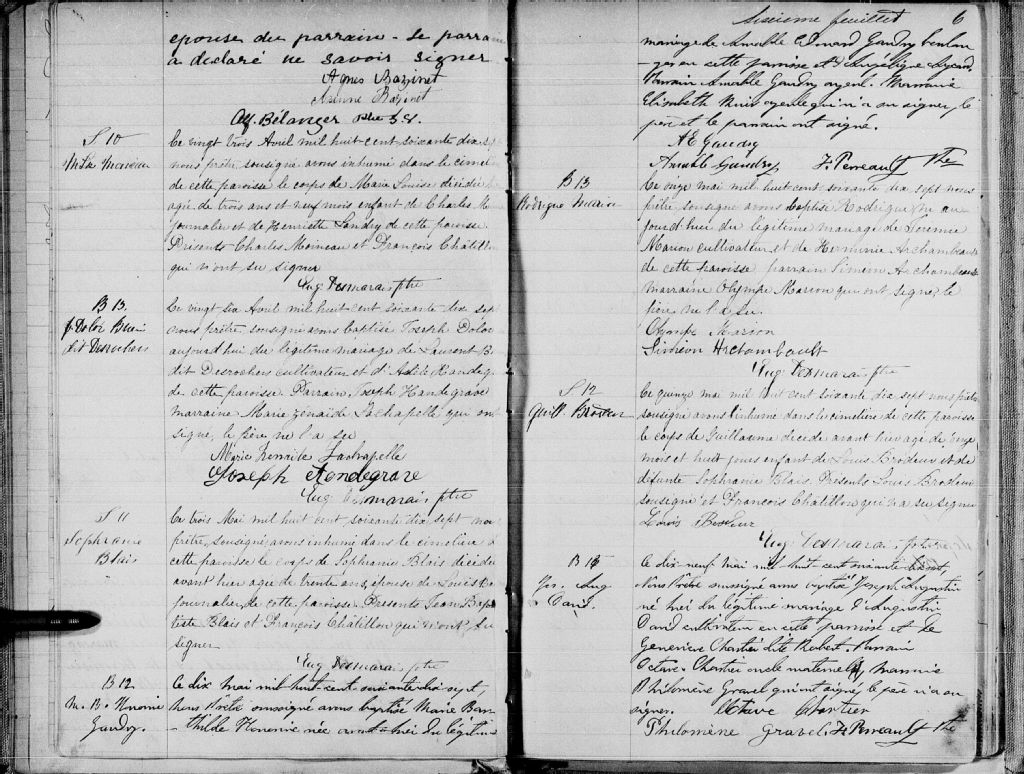 epouse du parrain - le parrain
a declaré ne savoir signer
Agnes Bazinet
Bazinet
Alf. Bélanger ptre
S 10
Ce vingt trois Avril mil huit cent soixante dix sept
nous prêtre, sousigné avons inhumé dans le cimetière
de cette paroisse le corps de Marie Louise décédée
agée de trois ans et neuf mois enfant de Charles
journalier et de Henriette Landry de cette paroisse
Présents Charles Moineau et François Châtillon
qui n'ont su signer
Eug Desmarais ptre
B 13
J. Dolor Brien
dit Desrochers
Ce vingt six Avril mil huit cent soixante dix sept
nous prêtre, sousigné avons baptisé Joseph Dolor
aujourd'hui du légitime mariage de Laurent
dit Desrochers cultivateur et d'
de cette paroisse Parrain Joseph Handegrave
marraine Marie zenaide Lachapelle qui ont
signé, le père ne l'a su
Marie Lachapelle
Joseph Andegrave
Eug Desmarais ptre
S 11
Sophranie
Blais
Ce trois Mai mil huit cent soixante dix sept nous
prêtre, sousigné avons inhumé dans le cimetière de
cette paroisse le corps de Sophranie Blais décédée
avant hier agée de trente ans, épouse de Louis
journalier de cette paroisse. Présents Jean Bap
tiste Blais et François Châtillon qui n'ont su
signer
Eug Desmarais ptre
B 12
M. B. Honorine
Gaudry.
Le dix mai mil huit cent soixante dix sept,
Nous Prêtre soussigné avons baptisé Marie Bar
thilde Honorine née avant-hier du légitime
Sixieme feuillet 6
mariage de Amable Edmond Gaudry boulan
ger en cette paroisse et d'Angelique
Parrain Amable Gaudry ayeul. Marraine
Elisabeth ayeule qui n'a su signer, le
père et le parrain ont signé.
A E Gaudry
Amable Gaudry F Perreault Ptre
B 13
Rodrigue Marion
Ce onze mai mil huit cent soixante dix sept nous
prêtre sousigné avons baptisé Rodrigue né au
jourd'hui du légitime mariage de
Marion cultivateur et de Herminie Archambault
de cette paroisse parrain Siméon Archambault
marraine Olympe Marion qui ont signé, le
père ne l'a su.
Olympe Marion
Siméon Archambault
Eug Desmarais ptre
S 12
Guill. Brodeur
Ce quinze mai mil huit cent soixante dix sept nous prêtre
sousigné avons inhumé dans le cimetière de cette paroisse
le corps de Guillaume décédé avant hier agé de onze
mois et huit jours enfant de Louis Brodeur et de
défunte Sophranie Blais. Présents Louis Brodeur
sousigné et François Châtillon qui n'a su signer
Louis Brodeur
Eug Desmarais ptre
B 15
Jos. Aug
Dand.
Le dix neuf mai mil huit cent soixante
Nous Prêtre soussigné avons baptisé Joseph Augustin
né hier du légitime mariage d'Augustin
cultivateur en cette paroisse et de
Genevieve Chartier dite Robert. Parrain
Octave Chartier oncle maternel, marraine
Philomène Gravel qui ont signé, le père n'a su
signer. Octave Chartier
Philomène Gravel F Perreault Ptre